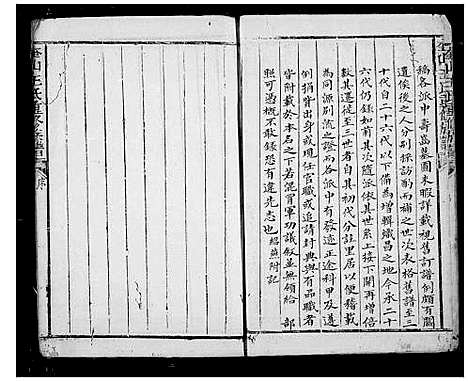 稱各派中壽㟁墓圖未暇詳載視舊訂譜倒頗有闕
遺俟後之人分別採訪酌而補之世次表格舊譜至三
十代自二十六代以下備為增輯熾昌之地今承二十
六代仍錄如前其次隨派依其世系上接下開再增倍
數其遷徙至三世者自其初代分註里居以便稽載
為同源别流之證而各派中有發迹正途科甲及遵
例捐貲出身或現任官職或追請封典與有品職者
皆附載於本名之下若混冒軍功議敘並無領給 部
照可憑者不敢錄恐有違先志也 紹燕附記